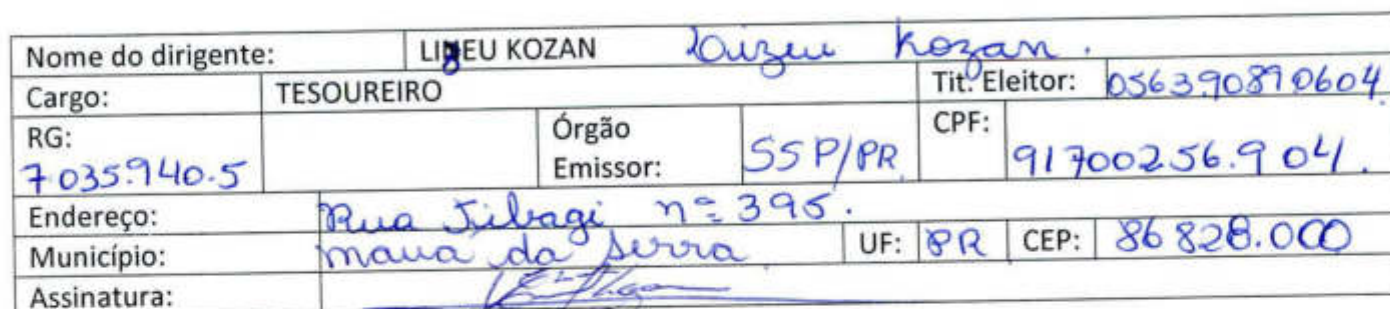 Nome do dirigente: LIZEU KOZAN Laizeu Kozan.
Cargo: TESOUREIRO Tit. Eleitor: 056390890604
RG: 7.035.940-5 Órgão Emissor: SSP/PR CPF: 91700256.904.
Endereço: Rua Tibagi nº 395.
Município: maua da serra UF: PR CEP: 86828.000
Assinatura: